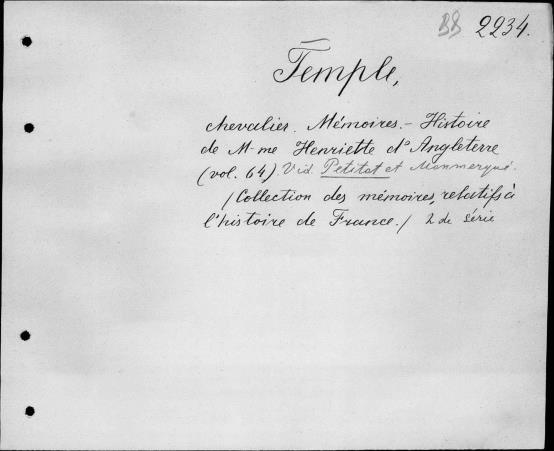 BB 2234.
Temple,
chevalier. Mémoires. - Histoire
de M-me Henriette d'Angleterre
(vol. 64). Vid. Petitot et Monmerqué.
/Collection des mémoires, relatifs à
l'histoire de France./ 2 de série